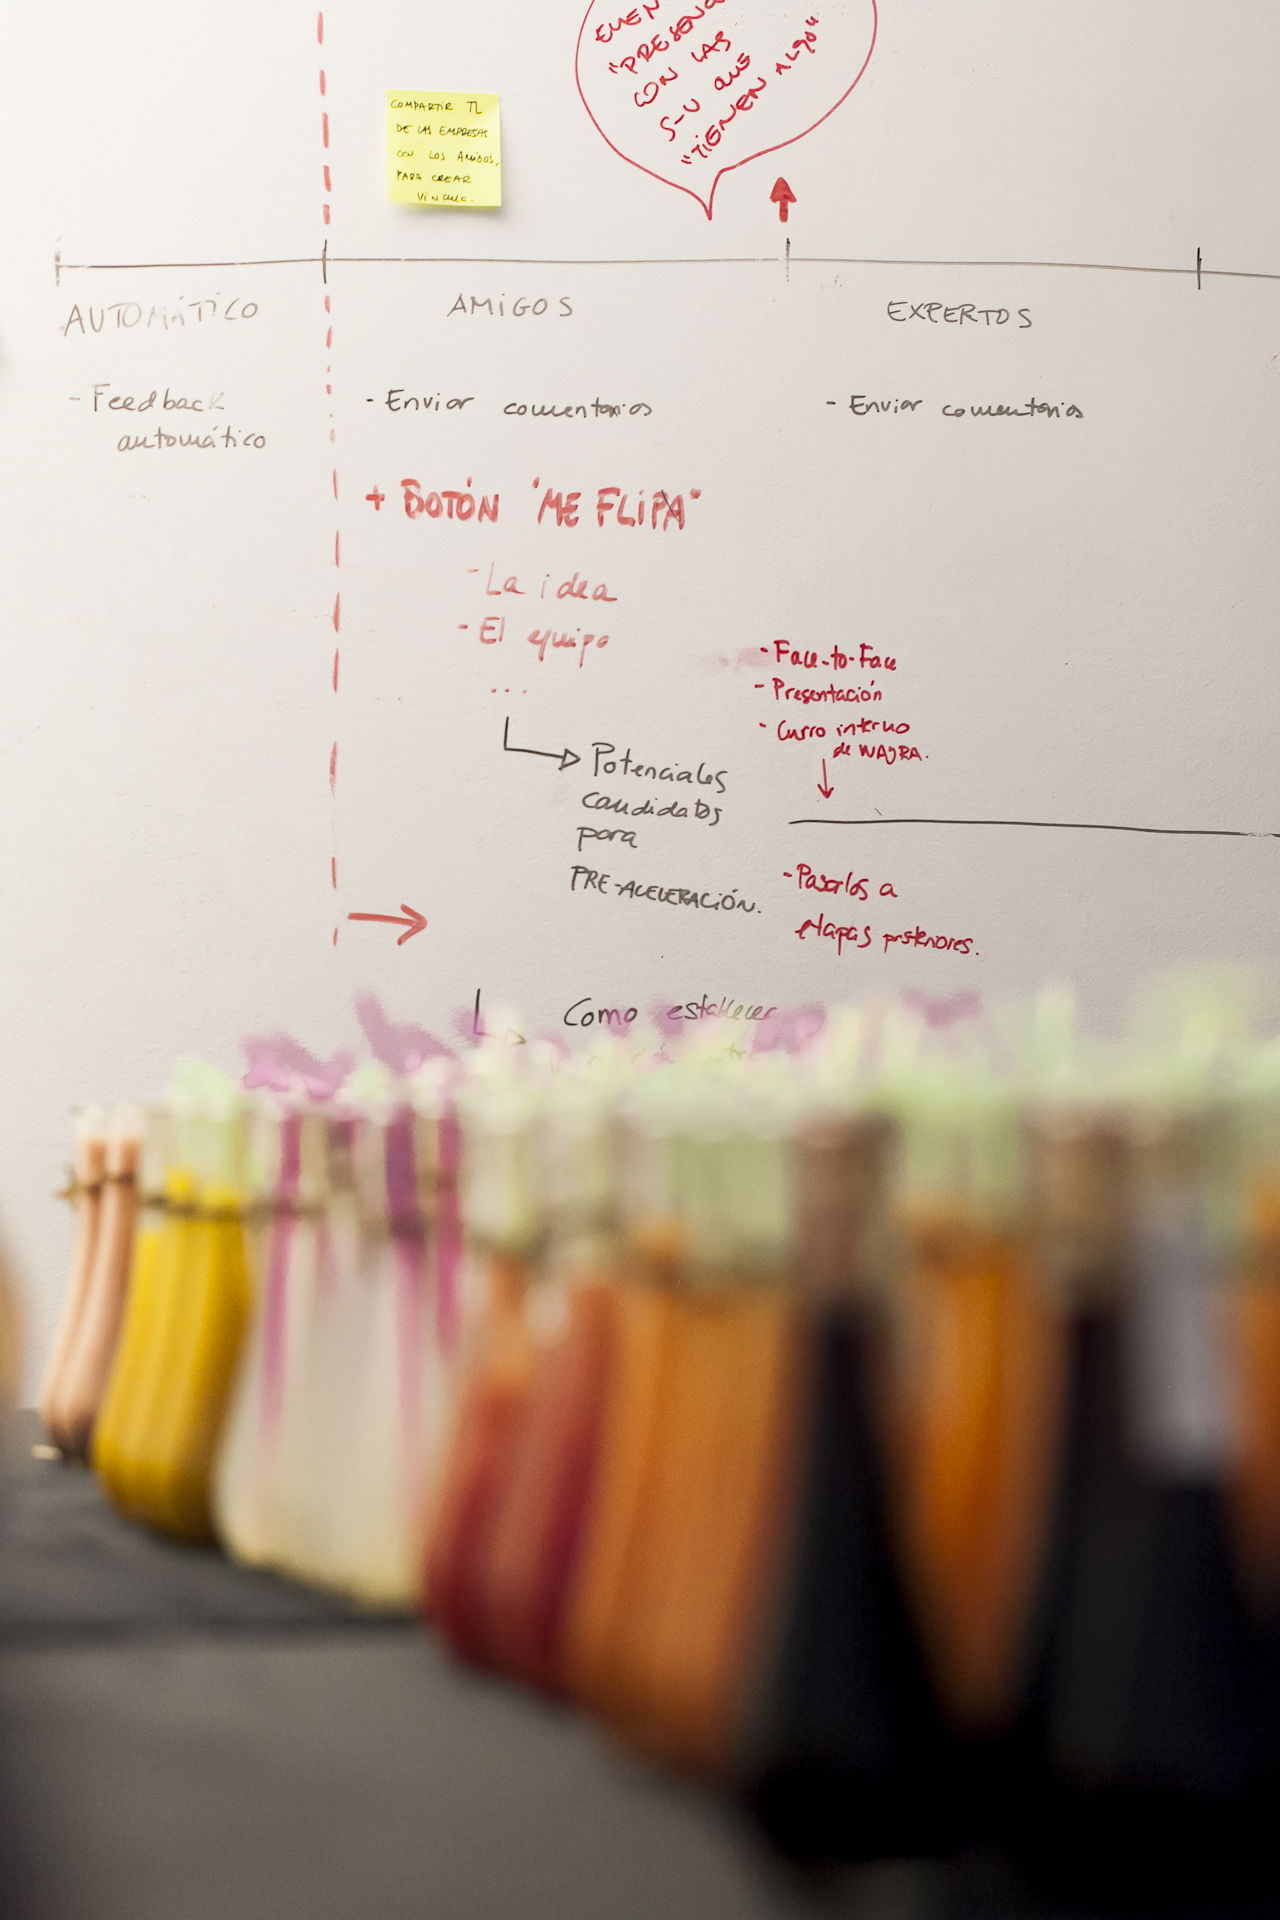 "PRESENC
CON LAS
S-U QUE
"TIENEN ALGO"
COMPARTIR TL
DE LAS EMPRESAS
CON LOS AMIGOS,
PARA CREAR
VINCULO.
AUTOMÁTICO
AMIGOS
EXPERTOS
- Feedback
automático
- Enviar comentarios
- Enviar comentarios
+ BOTÓN "ME FLIPA"
- La idea
- El equipo
...
- Face-to-Face
- Presentación
- Curro interno
de WAYRA.
Potenciales
candidatos
para
PRE-ACELERACIÓN.
- Pasarlos a
etapas posteriores.
Como establecer